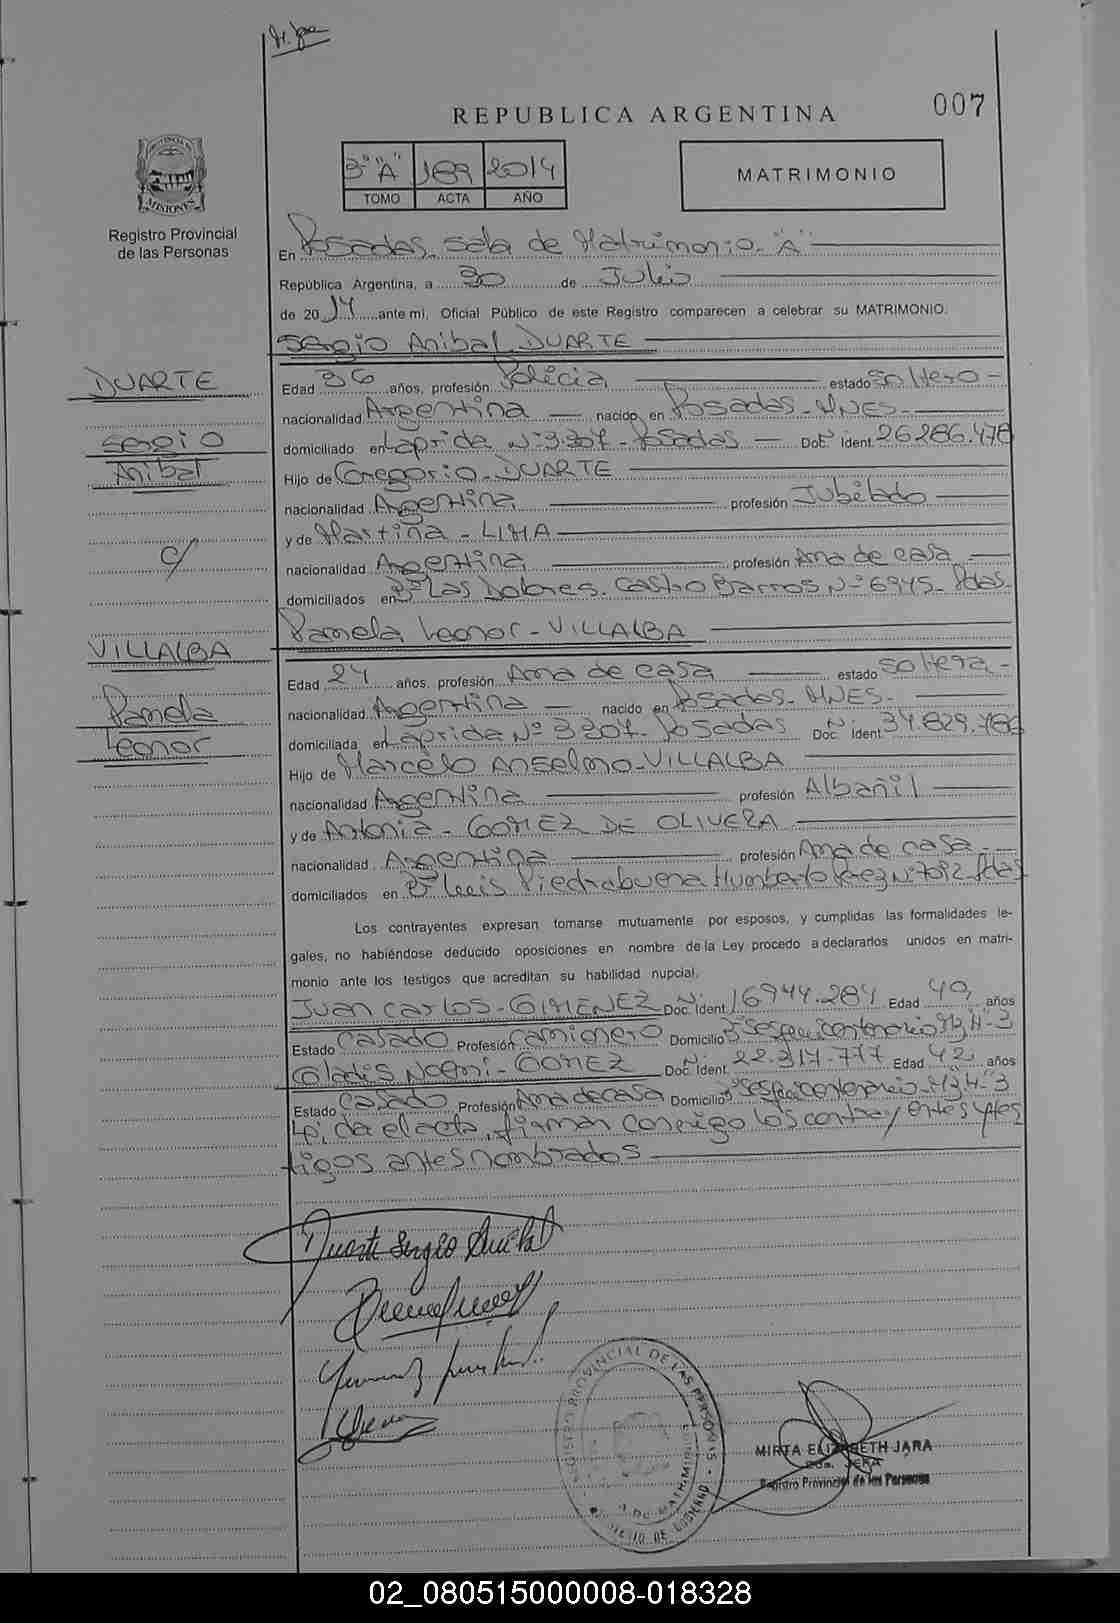 007
REPUBLICA ARGENTINA
3° "A" 189 2014
TOMO ACTA AÑO
MATRIMONIO
PROVINCIA
MISIONES
Registro Provincial
de las Personas
En Posadas. sala de Matrimonio - "A"
República Argentina, a 30 de Julio
de 2014 ante mi, Oficial Público de este Registro comparecen a celebrar su MATRIMONIO.
Sergio Anibal DUARTE
DUARTE
Edad 36 años, profesión Policia estado soltero -
nacionalidad Argentina nacido en Posadas - MNES -
Sergio
domiciliado en Laprida N° 3307 - Posadas - Doc. Ident. 26.286.478
Anibal
Hijo de Gregorio - DUARTE
nacionalidad Argentina profesión Jubilado
y de Martina - LIMA
c/
nacionalidad Argentina profesión Ama de casa
domiciliados en B° Las Dolores. Castro Barros N° 6945 - Pdas.
Pamela Leonor - VILLALBA
VILLALBA
Edad 24 años, profesión Ama de casa estado soltera -
Pamela
nacionalidad Argentina nacido en Posadas - MNES -
Leonor
domiciliada en Laprida N° 3307 - Posadas Doc. Ident. 34.829.786
Hijo de Marcelo Anselmo - VILLALBA
nacionalidad Argentina profesión Albañil
y de Antonia - GOMEZ DE OLIVERA
nacionalidad Argentina profesión Ama de casa -
domiciliados en B° Luis Piedrabuena Humberto Perez N° 7012 - Pdas
Los contrayentes expresan tomarse mutuamente por esposos, y cumplidas las formalidades le-
gales, no habiéndose deducido oposiciones en nombre de la Ley procedo a declararlos unidos en matri-
monio ante los testigos que acreditan su habilidad nupcial.
Juan Carlos - GIMENEZ Doc. Ident. 16944.284 Edad 49, años
Estado Casado Profesión Camionero Domicilio B° Sesquicentenario Mz H - 3
Gladis Noemi - GOMEZ Doc. Ident. 22.317.777 Edad 42, años
Estado Casado Profesión Ama de casa Domicilio B° Sesquicentenario - Mz H - 3
Leida el acta, firman conmigo los contrayentes y tes
tigos antes nombrados
Duarte Sergio Anibal
REGISTRO PROVINCIAL DE LAS PERSONAS
MIRTA ELIZABETH JARA
Registro Provincial de las Personas
02_080515000008-018328